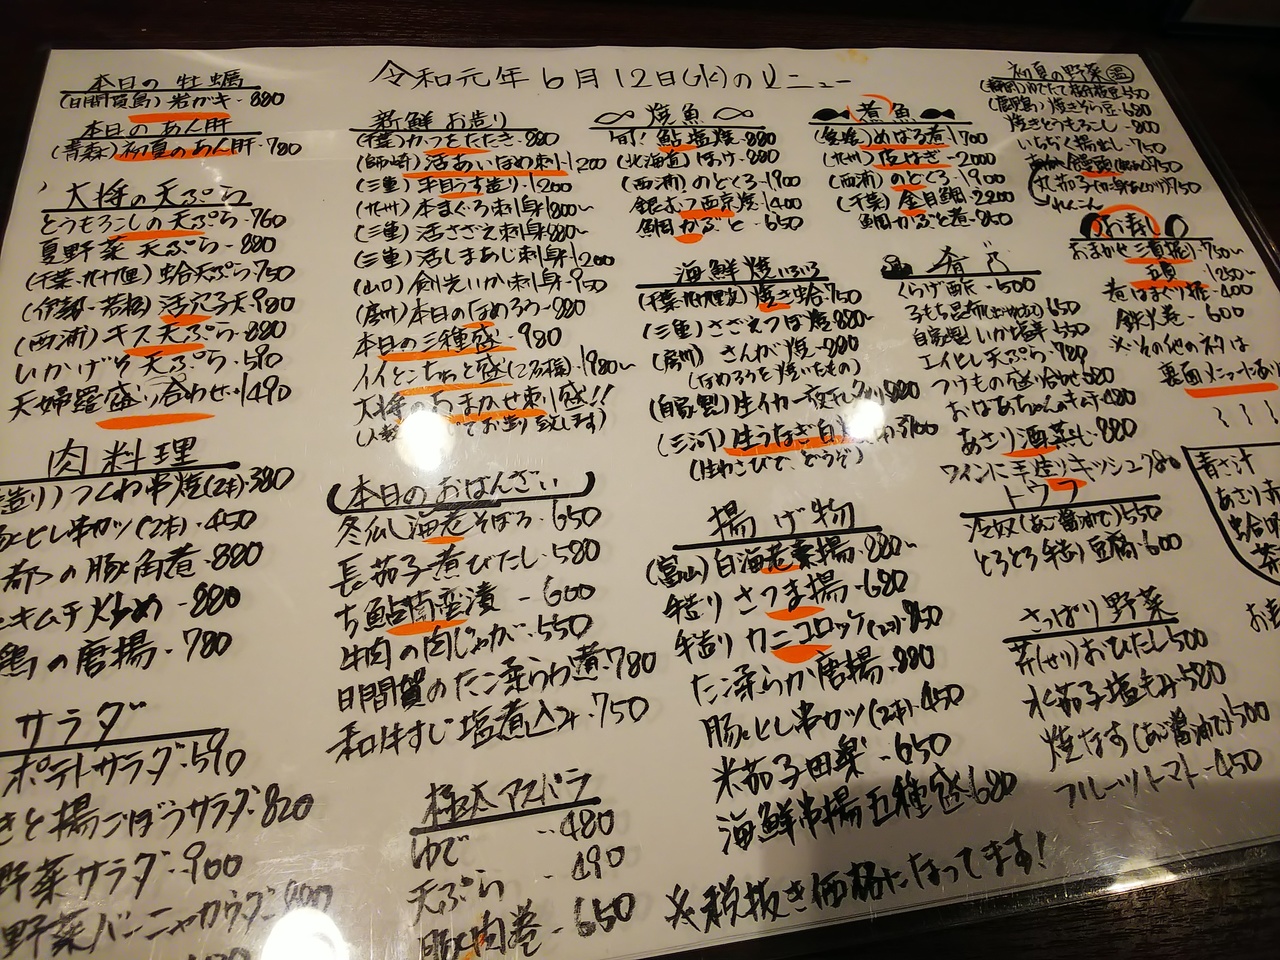 令和元年6月12日(水)のメニュー
本日の牡蠣
(日間賀島)岩ガキ・880
本日のあん肝
(青森)初夏のあん肝・780
大将の天ぷら
とうもろこしの天ぷら・760
夏野菜天ぷら・880
(千葉・九十九里)蛤天ぷら・750
(伊勢・若松)活穴子天・980
(西浦)キス天ぷら・880
いかげそ天ぷら・590
天婦羅盛り合わせ・1490
肉料理
造り)つくね串焼(2本)・380
豚ヒレ串カツ(2本)・450
の豚角煮・880
キムチ炒め・880
鶏の唐揚・780
サラダ
ポテトサラダ・590
揚ごぼうサラダ・820
野菜サラダ・900
野菜バーニャカウダ・
新鮮お造り
(千葉)かつをたたき・880
(師崎)活あいなめ刺・1200
(三重)平目うす造り・1200
(九州)本まぐろ刺身・1800〜
(三重)活さざえ刺身・880〜
(三重)活しまあじ刺身・1200
(山口)剣先いか刺身・950
(房州)本日のなめろう・880
本日の三種盛・980
イイとこちょっと盛(二名様)・1980〜
大将のおまかせ刺し盛!!
てお造り致します)
本日のおばんざい
冬瓜し海老そぼろ・650
長茄子煮びたし・580
ち鮎南蛮漬 - 600
牛肉の肉じゃが・550
日間賀のたこ柔らか煮・780
和牛すじ塩煮込み・750
極太アスパラ
ゆで ・・480
天ぷら ・490
豚肉巻・650
焼魚
旬!鮎塩焼・880
(北海道)ほっけ・880
(西浦)のどぐろ・1900
銀むつ西京焼・1400
鯛かぶと・650
海鮮焼いろいろ
(千葉・九十九里)焼き蛤・750
(三重)さざえつぼ焼・880〜
(房州)さんが焼・880
(なめろうを焼いたもの)
(自家製)生イカ一夜干し・880
(三河)生うなぎ白焼・3100
(生わさびで、どうぞ)
揚げ物
(富山)白海老素揚・880〜
手造りさつま揚・680
手造りカニコロッケ(2ヶ)・850
たこ柔らか唐揚・880
豚ヒレ串カツ(2本)・450
米茄子田楽・650
海鮮串揚五種盛・680
※税抜き価格になってます!
煮魚
(愛媛)めばる煮・1700
(九州)皮はぎ・2000
(西浦)のどぐろ・1900
(千葉)金目鯛・2200
鯛かぶと煮・850
肴
くらげ酢・500
子もち昆布・650
自家製いか塩辛・550
エイヒレ天ぷら・780
つけもの盛り合せ・680
おばあちゃんのキムチ・480
あさり酒蒸し・880
ワインに手造りキッシュ・780
トウフ
冷奴(あご醤油で)・550
とろとろ手造り豆腐・600
さっぱり野菜
芹(せり)おひたし・500
水茄子塩もみ・580
焼なす(あご醤油で)・500
フルーツトマト・450
初夏の野菜(温)
(静岡)ゆでたて枝豆・550
(鹿児島)焼きそら豆・680
焼きとうもろこし・800
いちぢく揚出し・750
饅頭・950
丸茄子・950
れんこん
お寿司
おまかせ三貫握り・750〜
五貫・1250〜
煮はまぐり握・400
鉄火巻・600
※その他のネタは
裏面メニューにあり
青さ汁
あさり赤
蛤吸
茶
お